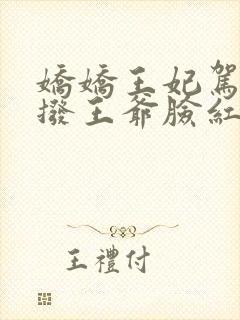 嬌嬌王妃駕
撥王爺臉紅
王禮付